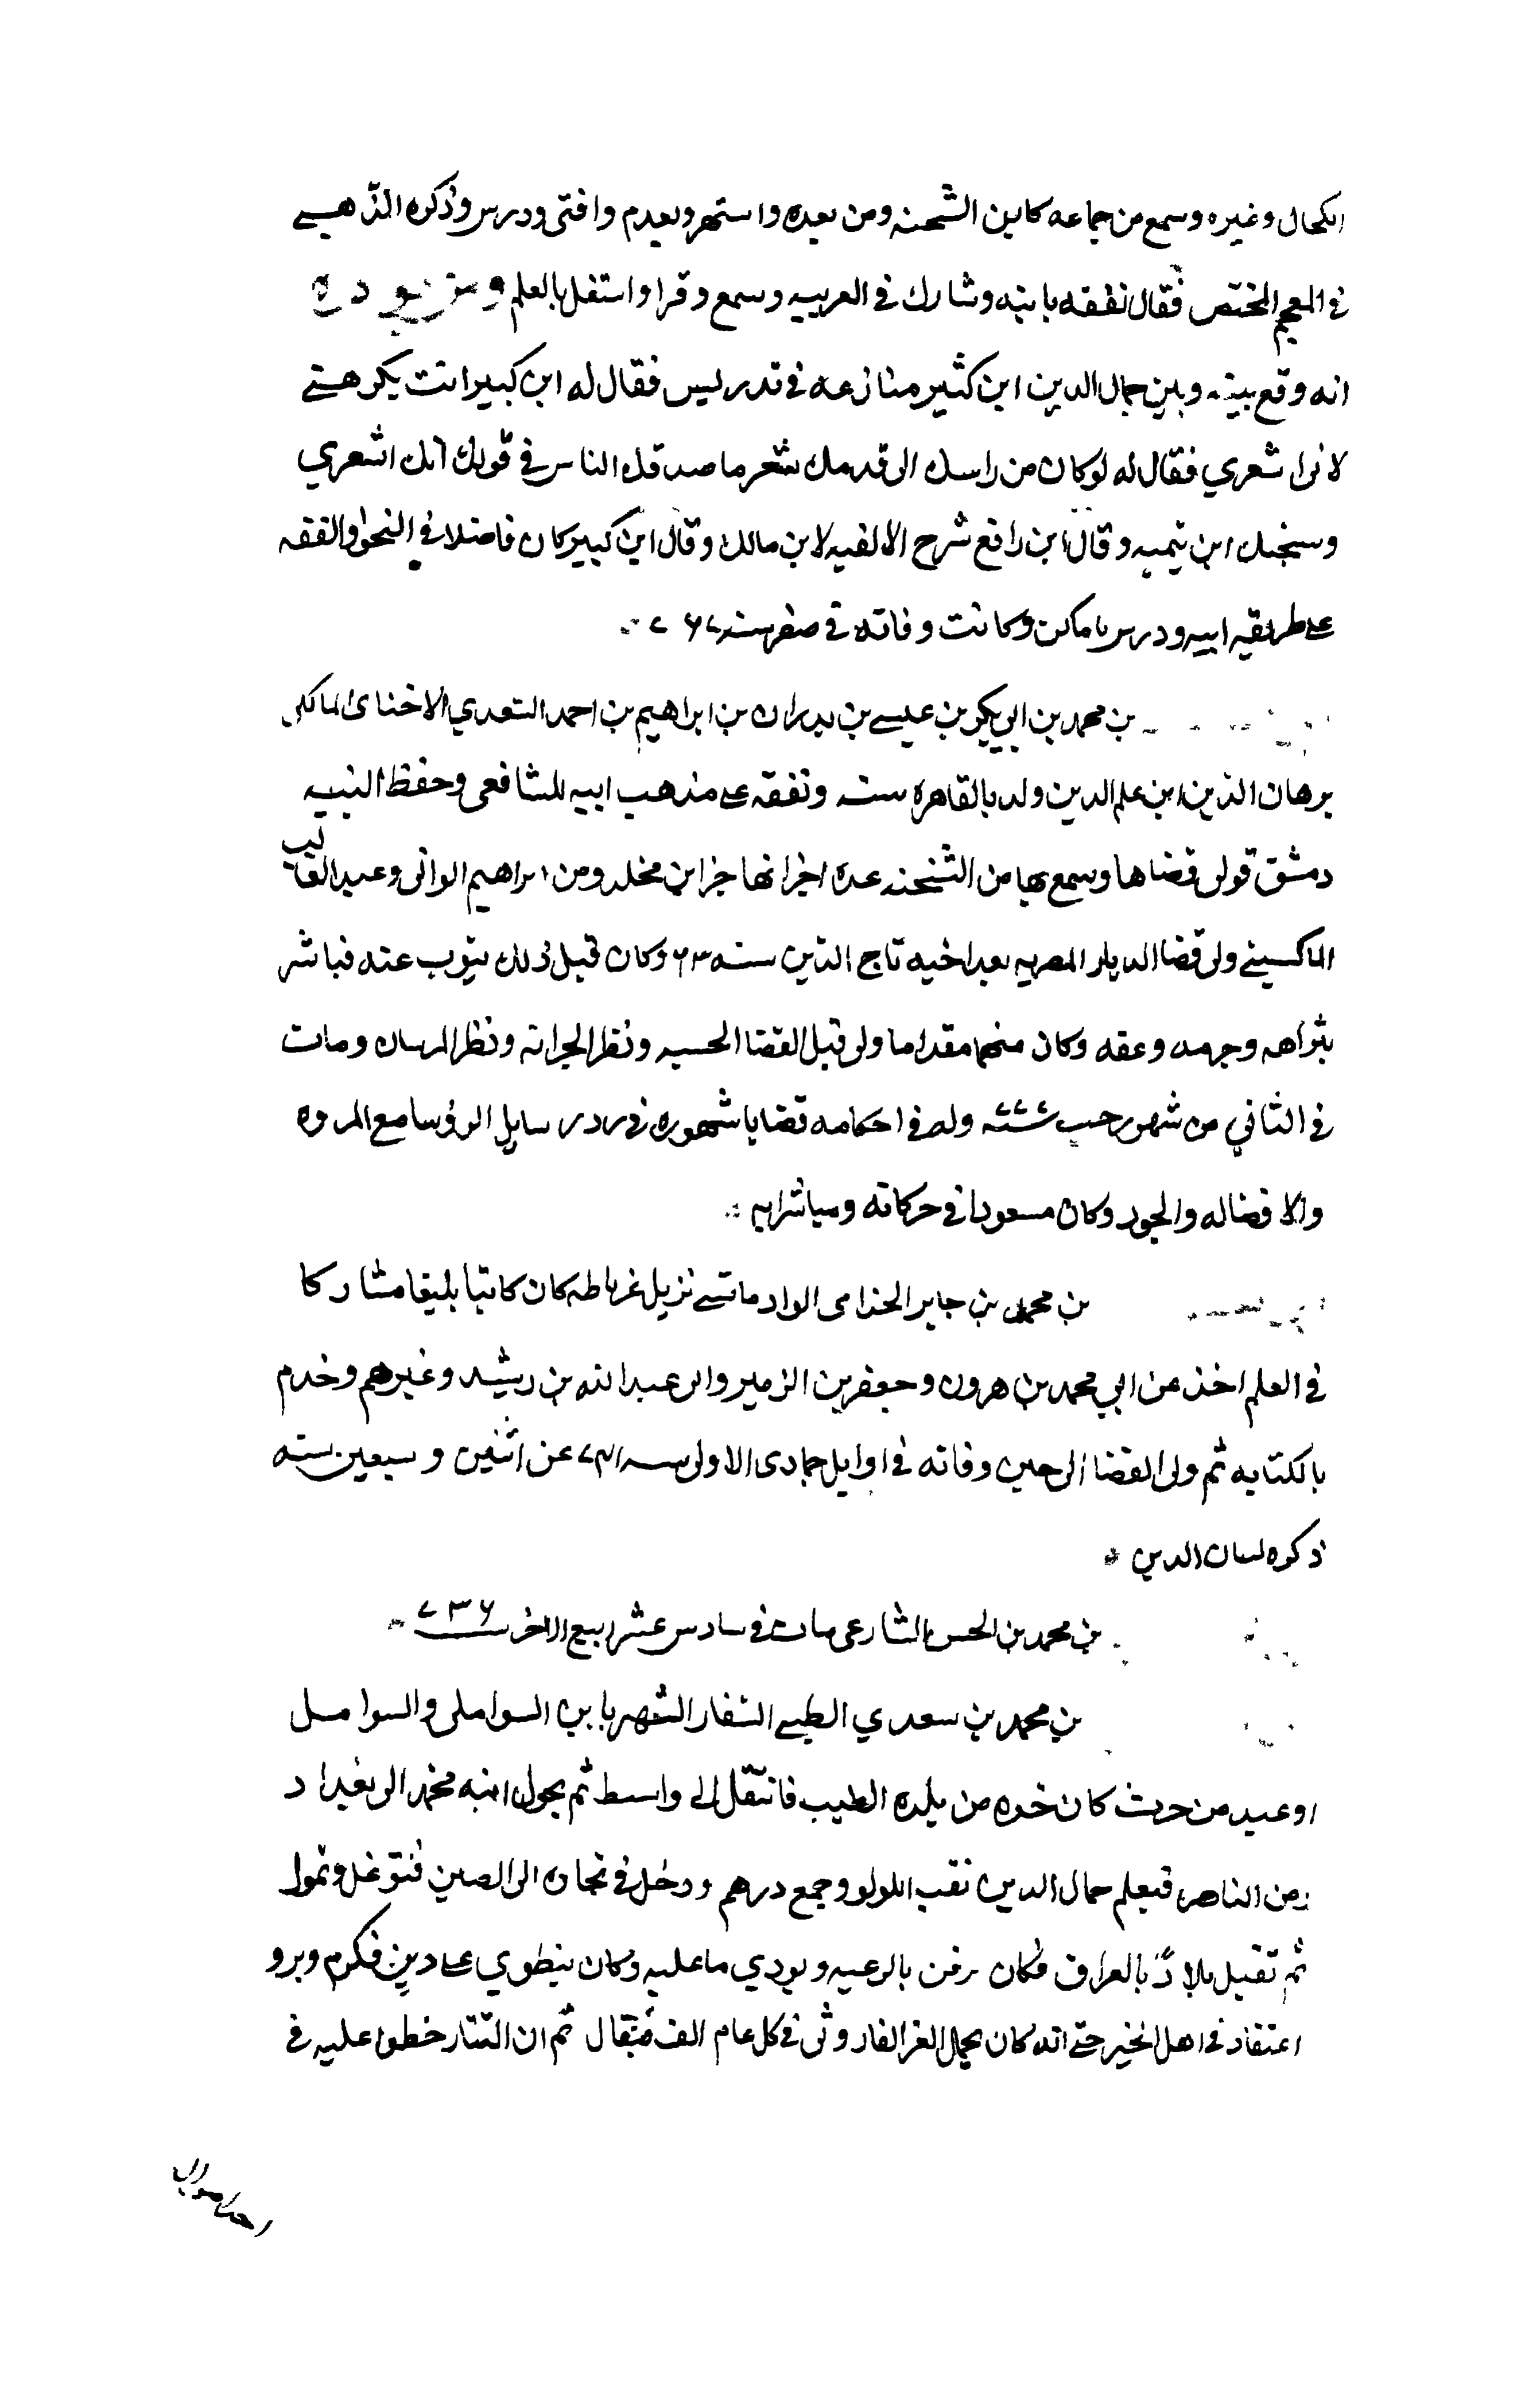 الكمال وغيره وسمع من جماعه كابن الشحنه ومن بعده واشتهر وتقدم وافتى ودرس وذكره الذهبي
في المعجم المختص فقال تفقه بابيه وشارك في العربيه وسمع وقرا واشتغل بالعلم ومن نوادره
انه وقع بينه وبين جمال الدين ابن كثير منازعه في تدريس فقال له ابن كبير انت تكرهني
لانى اشعري فقال له لو كان من راسك الى قدمك شعر ما صدقك الناس في قولك انك اشعري
وشيخك ابن تيميه وقال ابن رافع شرح الالفيه لابن مالك وقال ابن كبير كان فاضلا في النحو والفقه
على طريقه ابيه ودرس باماكن وكانت وفاته في صفر سنه ٧٦٧
بن محمد بن ابي بكر بن عيسى بن بدران بن ابراهيم بن احمد السعدي الاخناى المالكي
برهان الدين ابن علم الدين ولد بالقاهره سنه وتفقه على مذهب ابيه للشافعى وحفظ التنبيه
دمشق تولى قضاها وسمع بها من الشحنه عده اجزا نها جزا ابن مخلد ومن ابراهيم الوانى وعبد الغالب
الماكسيني ولى قضا الديار المصريه بعد اخيه تاج الدين سنه ٦٣ وكان قبل ذلك ينوب عنه فباشر
بنزاهه وحرمه وعفه وكان منهما مقداما ولى قبل القضا الحسبه ونظر الخزانه ونظر المرسان ومات
في الثاني من شهر رجب سنه ٧٧٧ وله في احكامه قضايا شهوره في رد رسايل الروسا مع المروه
والا فضاله والجود وكان مسعودا في حركاته ومباشراته
بن محمد بن جابر الجذامى الوادياشي نزيل غرناطه كان كاتبا بليغا مشاركا
في العلم اخذ عن ابي محمد بن هرون وجعفر بن الزبير وابى عبد الله بن رشيد وغيرهم وخدم
بالكتابه ثم ولى القضا الى حين وفاته في اوايل جمادى الاولى سنه ٧٤١ عن اثنين وسبعين سنه
ذكره لسان الدين
بن محمد بن الحسن الشارعى مات في سادس عشر ربيع الاخر سنه ٧٣٦
بن محمد بن سعدي الطيبي السفار الشهير بابن السواملى والسوامل
اوعيه من خزف كان خده من بلده الطيب فانتقل الى واسط ثم تحول ابنه محمد الى بغداد
زمن الناصر فتعلم جمال الدين نقب اللولو وجمع درهم ودخل في تجان الى الصين فتوغل وتمول
ثم تقبل بلادًا بالعراق فكان يرفق بالرعيه ويودي ما عليه وكان ينطوي على دين فكرم وبرو
اعتقاد في اهل الخير حتى انه كان يحمل للعز الفاروثى في كل عام الف مثقال ثم ان التتار خطوا عليه في